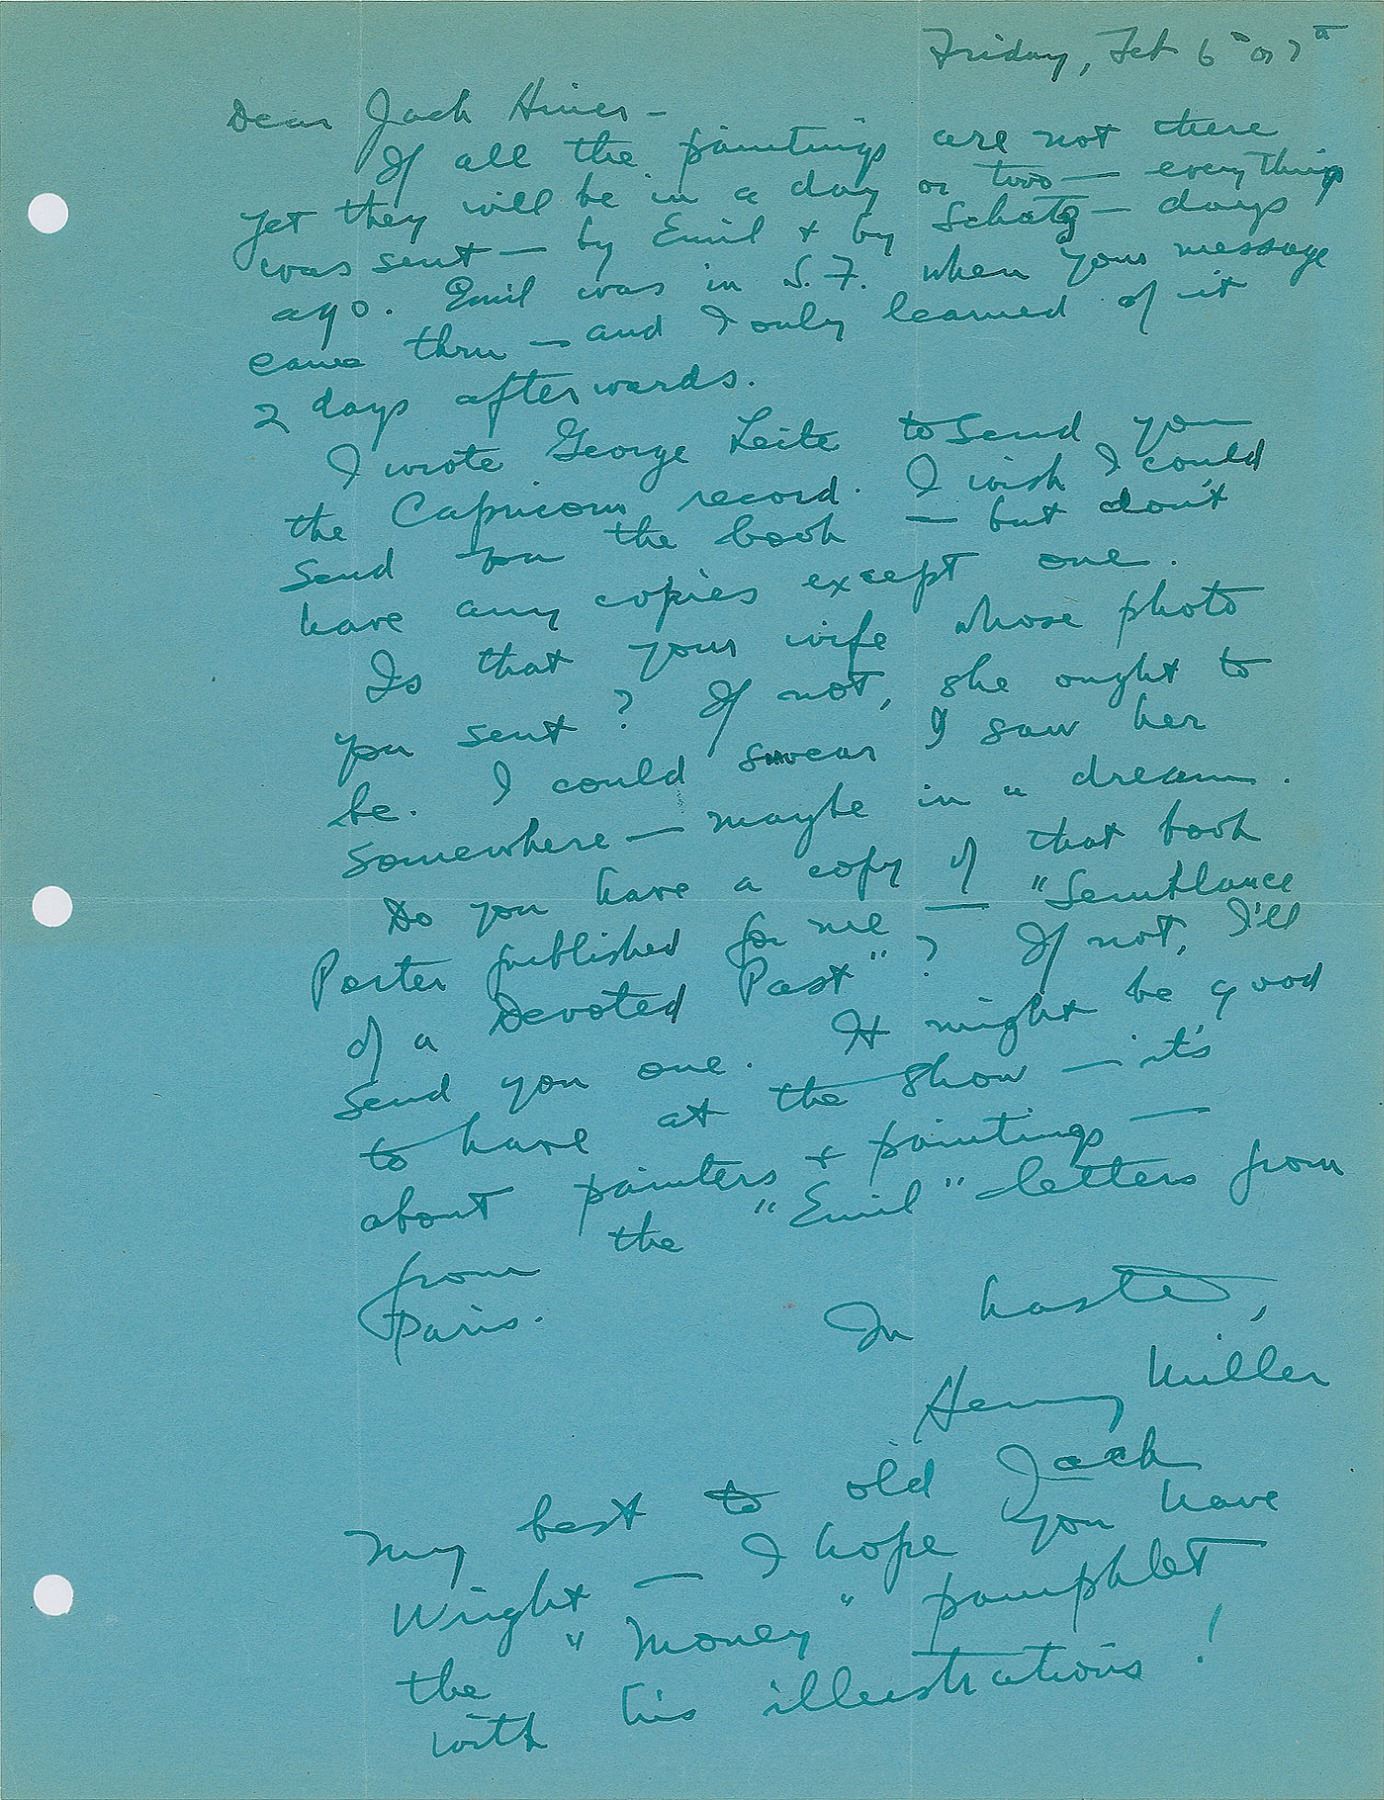 Friday, Feb 6th or 7th
Dear Jack Hines –
If all the paintings are not there
yet they will be in a day or two — everything
was sent — by Emil + by Schatz — days
ago. Emil was in S.F. when your message
came thru — and I only learned of it
2 days afterwards.
I wrote George Leite to send you
the Capricorn record. I wish I could
send you the book — but don't
have any copies except one.
Is that your wife whose photo
you sent? If not, she ought to
be. I could swear I saw her
somewhere — maybe in a dream.
Do you have a copy of that book
Porter published for me — "Semblance
of a Devoted Past"? If not, I'll
send you one. It might be good
to have at the show — it's
about painters + paintings —
from the "Emil" letters from
Paris.
In haste,
Henry Miller
My best to old Jack
Wright — I hope you have
the "Money" pamphlet
with his illustrations!